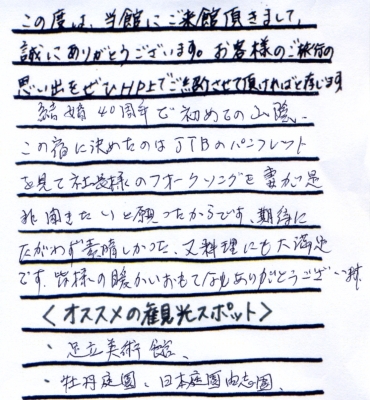 この度は、当館にご来館頂きまして、
誠にありがとうございます。お客様のご旅行の
思い出をぜひHP上でご紹介させて頂ければと存じます
結婚40周年で初めての山陰、
この宿に決めたのはJTBのパンフレット
を見て社長様のフォークソングを妻が是
非聞きたいと願ったからです、期待に
たがわず素晴しかった、又料理にも大満足
です、皆様の暖かいおもてなしありがとうございます
<オススメの観光スポット>
・足立美術館、
・牡丹庭園、日本庭園由志園、